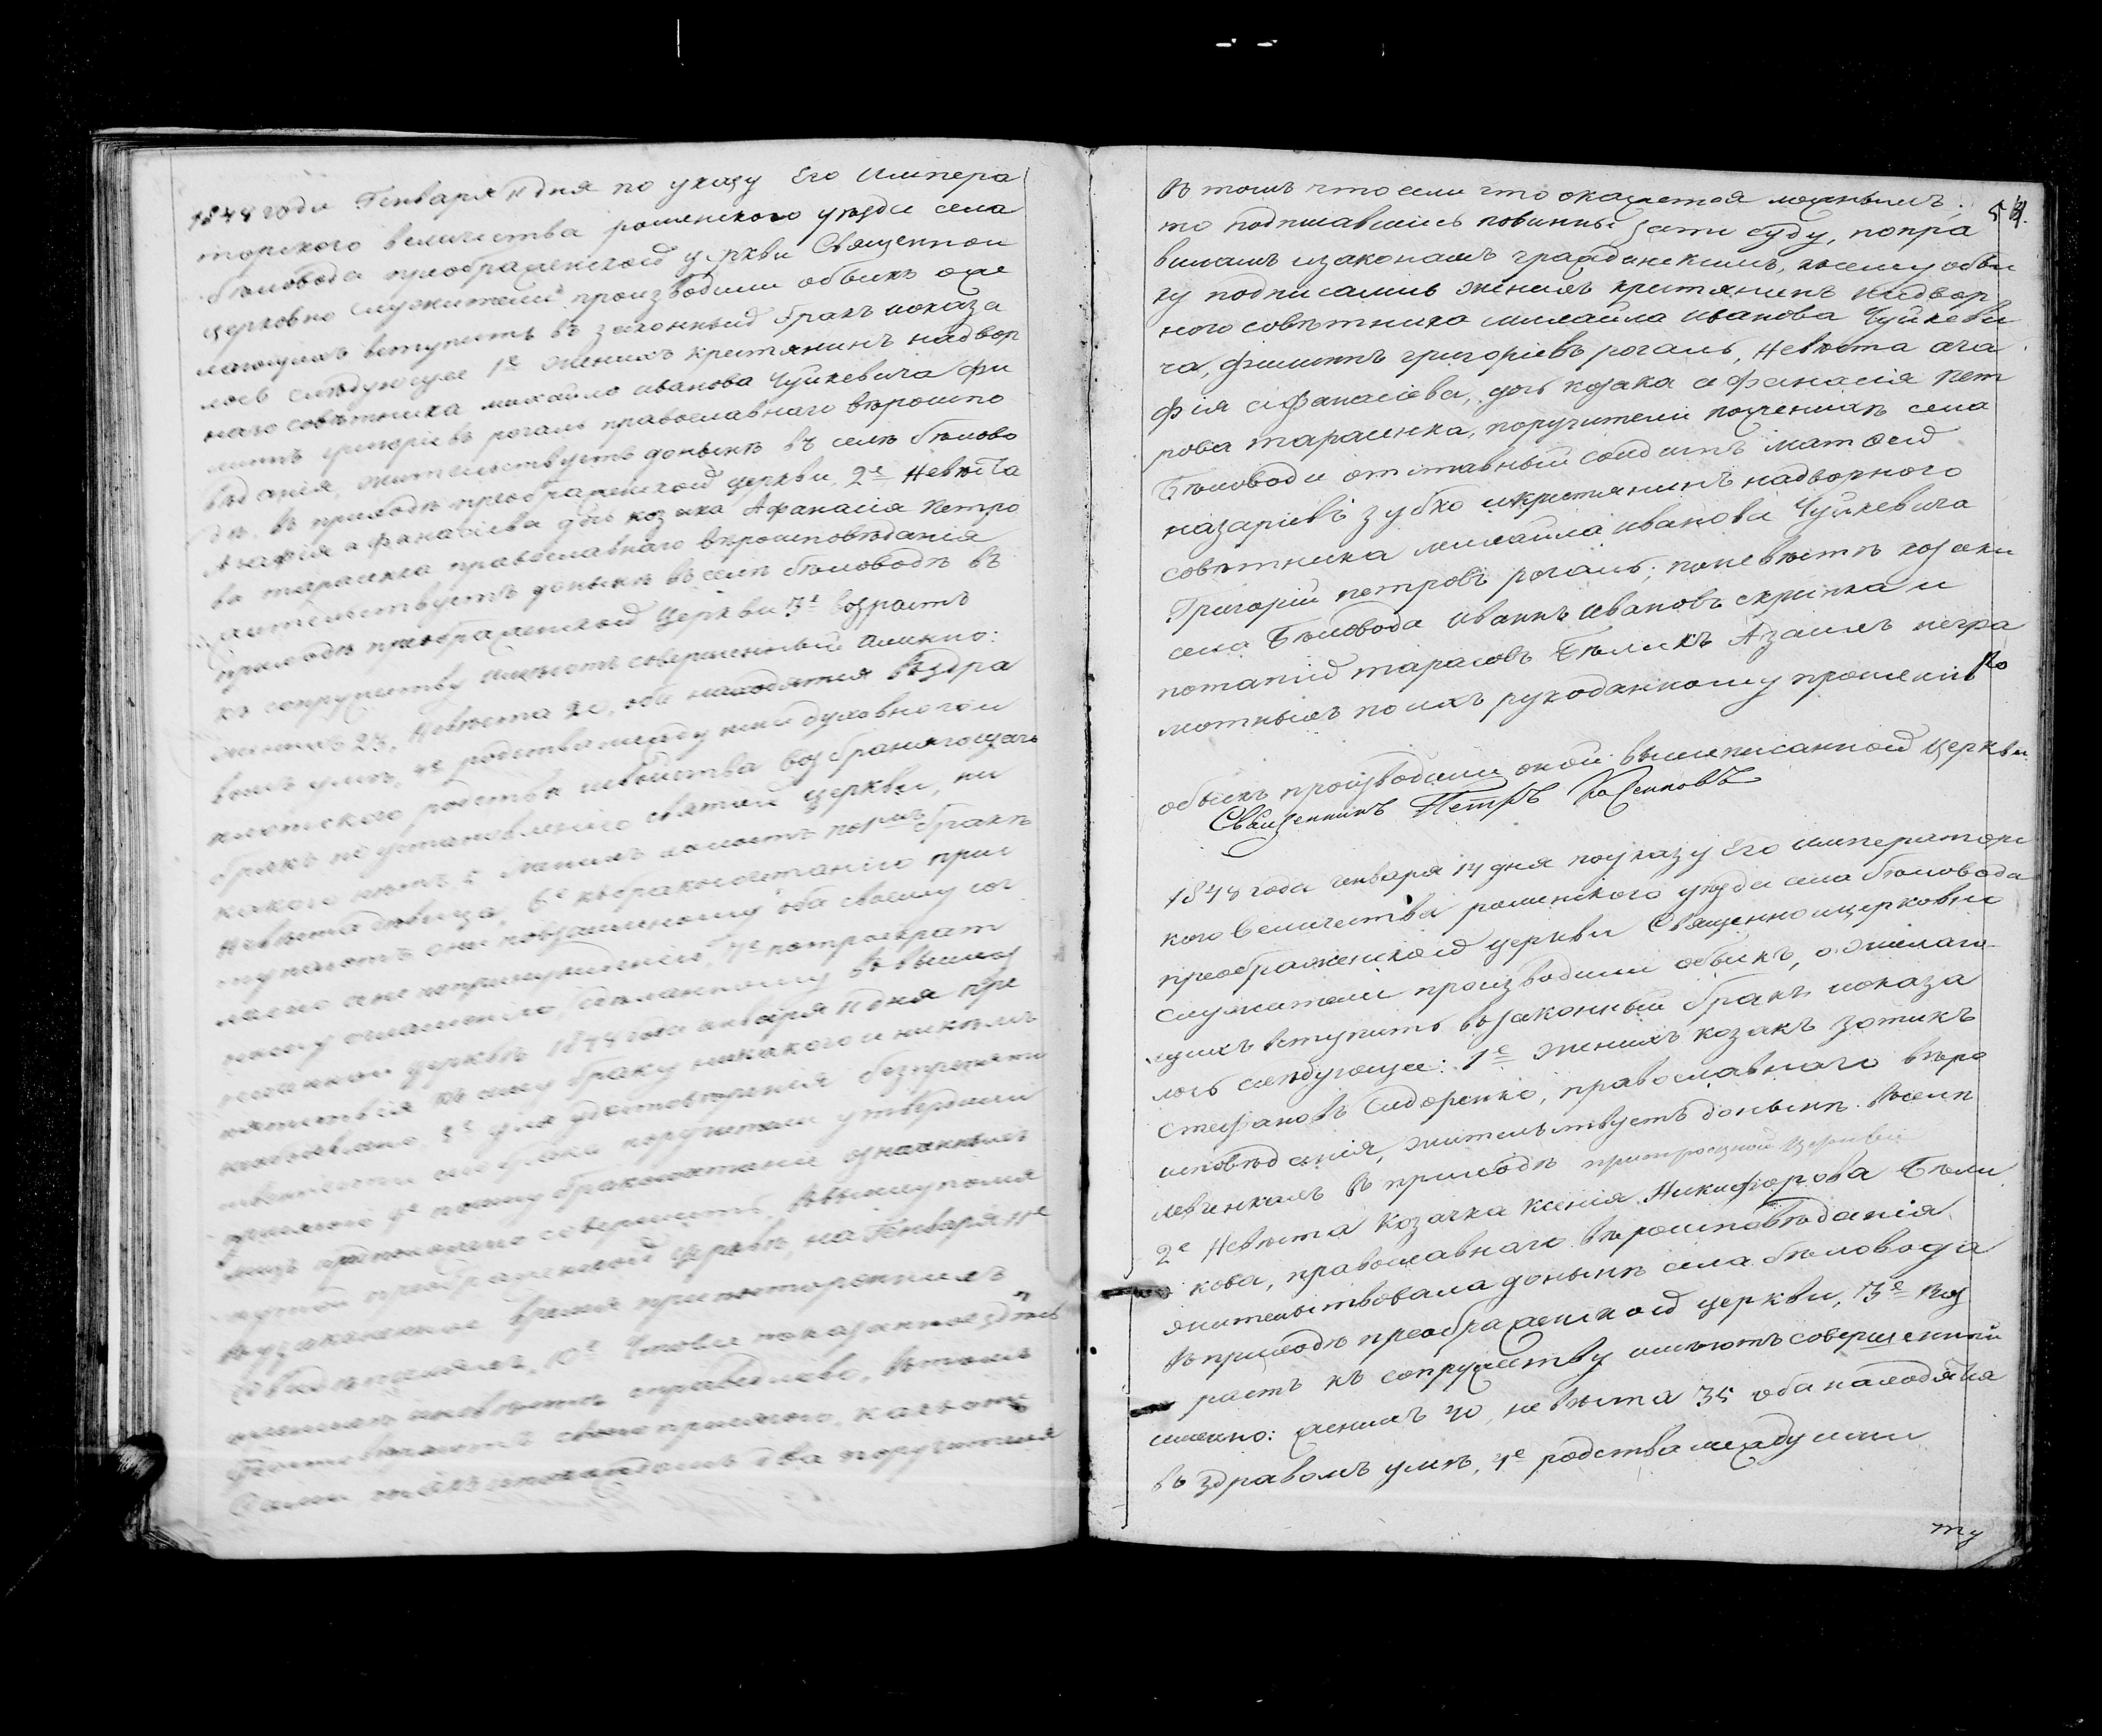 1848 года Генваря 11 дня по указу Его Импера
торского величества роменского уезда села
бѣловода преображенской церкви Священнои
церковно служители производили обыскъ о же
лающихъ вступить въ законный бракъ и оказа
лось слѣдующее 1е женихъ крестянинъ надвор
наго совѣтника михайло иванова Чуйкевича фи
липпъ григоріевъ рогаль православнаго вѣроиспо
вѣданія, жительствуетъ донынѣ въ селѣ бѣлово
дѣ, в приходѣ преображенской церкви, 2е Невѣста
Агафія афанасіева дочь козака Афанасія Петро
ва тарасенка православнаго вѣроисповѣданія
жительствуетъ донынѣ в селѣ бѣловодѣ въ
приходѣ преображенской Церкви 3е возрастъ
къ супружеству имѣютъ совершенный имянно:
женихъ 23, Невѣста 20, оба находятся в здра
вомъ умѣ, 4е родства между ними духовного и
плотского родства и свойства возбраняющаго
бракъ по установленію святой церкви, ни
какого нѣтъ 5 Женихъ холостъ
Невѣста девица, 6е къ бракосочетанію прис
тупаютъ они по взаимному оба своему сог
ласію а не по принужденію, 7е по троекрат
ному оглашенію, сделанному в
церквѣ 1848 года января 11 дня пре
пятствія къ сему браку никакого и никѣмъ
не объявлено 8е для удостовѣренія безпрепятс
твенности сего брака поручители утвердили
9е почему бракосочетаніе означенныхъ
лицъ предположено совершить в вышеупомя
нутой преображенской Церквѣ, на Генваря 11е
в узаконенное время при постороннихъ
свидѣтеляхъ, 10е Что все показанное здѣсь
о женихѣ и невѣстѣ справедливо, в томъ
удостовѣряютъ своею присягою, какъ они
Сами такъ и по каждомъ два поручителя

В томъ что если что окажется ложнымъ,
54.
то подписавшись повинны суду, по пра
виламъ и законамъ гражданскимъ, к сему обыс
ку подписались женихъ крестянинъ надвор
ного совѣтника михайла иванова Чуйкеви
ча, филиппъ григоріевъ рогаль, Невѣста ага
фія афанасіева, дочь козака афанасія пет
рова тарасенка, поручители по женихѣ села
Бѣловода отставный солдатъ матѳей
назаріевъ зубко и крестянинъ надворного
совѣтника михайла иванова Чуйкевича
Григорій петровъ рогаль; по невѣстѣ козаки
села Бѣловода иванъ ивановъ скрипка и
потапій тарасовъ Бѣликъ А за ихъ негра
мотныхъ по ихъ рукоданному прошенію
обыскъ производили оной вышеписанной церкви
Священникъ Петръ

1848 года генваря 14 дня по указу Его императорс
кого величества роменского уезда села бѣловода
преображенской церкви Священно и церковно
служители производили обыскъ, о желаю
щихъ вступить в законный бракъ и оказа
лось слѣдующее: 1е женихъ козакъ зотикъ
стефановъ Сидоренко, православнаго вѣро
исповѣданія, жительствуетъ донынѣ в селѣ
левченкахъ в приходѣ притроицкой церкви
2е Невѣста козачка ксенія Никифорова Бѣли
кова, православнаго вѣроисповѣданія,
жительствовала донынѣ села бѣловода
в приходѣ преображенской церкви, 3е воз
растъ къ супружеству имѣютъ совершенный
имянно: женихъ 40, невѣста 35 оба находятся
въ здравомъ умѣ, 4е родства между ими